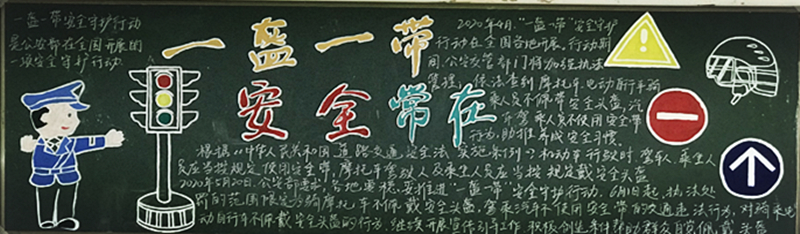 一盔一带安全守护行动
是公安部在全国开展的
一项安全守护行动
一盔一带
安全常在
2020年4月,"一盔一带"安全守护
行动在全国各地开展,行动期
间,公安交管部门将加强执法
管理,依法查纠摩托车、电动自行车骑
乘人员不佩戴安全头盔,汽
车驾乘人员不使用安全带
行为,助推养成安全习惯。
根据《中华人民共和国道路交通安全法》实施条例,机动车行驶时,驾驶人、乘坐人
员应当按规定使用安全带,摩托车驾驶人及乘坐人员应当按规定戴安全头盔
2020年5月20日,公安部要求,各地要稳妥推进"一盔一带"安全守护行动。6月1日起,执法处
罚的范围限定为骑摩托车不佩戴安全头盔,驾乘汽车不使用安全带的交通违法行为,对骑乘电
动自行车不佩戴安全头盔的行为,继续开展宣传引导工作,积极创造条件帮助群众自觉佩戴头盔